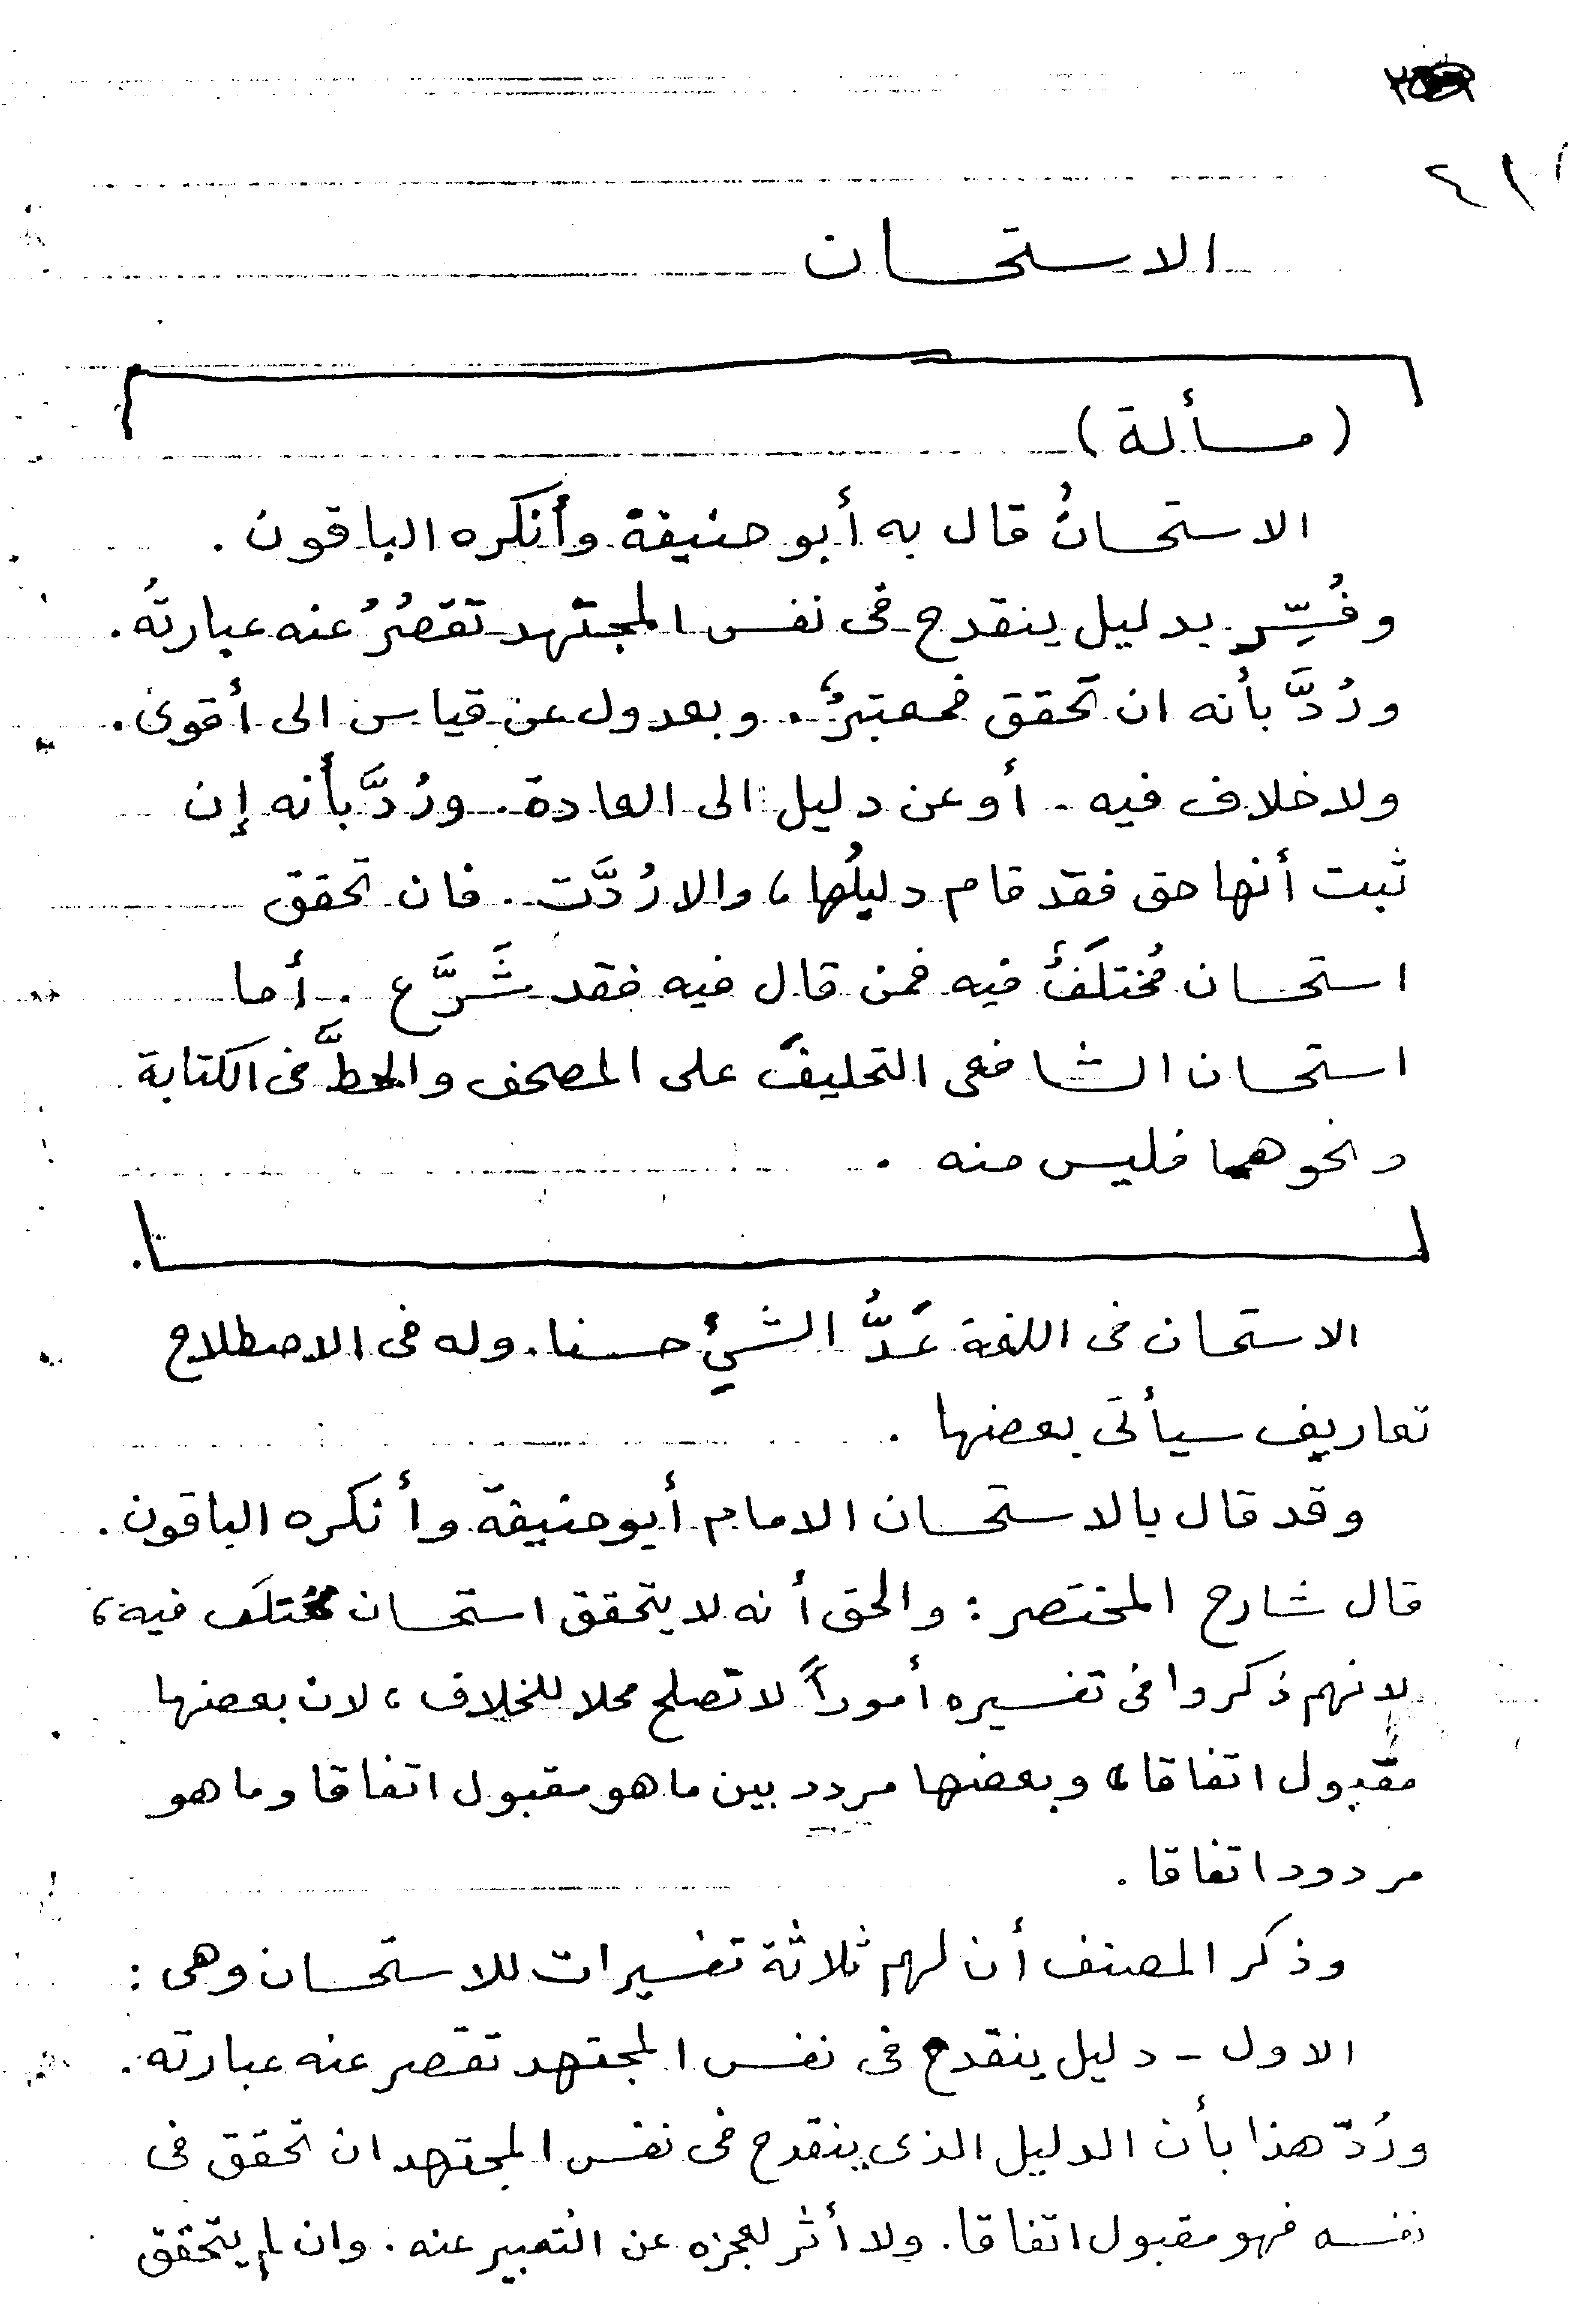 ٤١٢
الاستحسان
(مسألة)
الاستحسانُ قال به أبو حنيفة وأنكره الباقون .
وفُسِّر بدليل ينقدح فى نفس المجتهد تقصُرُ عنه عبارتُه .
ورُدَّ بأنه ان تحقق فمعتبرٌ . وبعدول عن قياس الى أقوى .
ولا خلاف فيه - أو عن دليل الى العادة . ورُدَّ بأنه إن
ثبت أنها حق فقد قام دليلُها ، والا رُدَّت . فان تحقق
استحسان مُختلَفٌ فيه فمن قال فيه فقد شَرَّع . أما
استحسان الشافعى التحليفَ على المصحف والحطَّ فى الكتابة
ونحوهما فليس منه .
الاستحسان فى اللغة عَدُّ الشيءِ حسنا . وله فى الاصطلاح
تعاريف سيأتى بعضها .
وقد قال بالاستحسان الامام أبو حنيفة وأنكره الباقون .
قال شارح المختصر : والحق أنه لا يتحقق استحسان مختلَف فيه ،
لانهم ذكروا فى تفسيره أموراً لا تصلح محلا للخلاف ، لان بعضها
مقبول اتفاقا ، وبعضها مردد بين ما هو مقبول اتفاقا وما هو
مردود اتفاقا .
وذكر المصنف أن لهم ثلاثة تفسيرات للاستحسان وهى :
الاول - دليل ينقدح فى نفس المجتهد تقصر عنه عبارته .
ورُدّ هذا بأن الدليل الذى ينقدح فى نفس المجتهد ان تحقق فى
نفسه فهو مقبول اتفاقا . ولا أثر لعجزه عن التعبير عنه . وان لم يتحقق